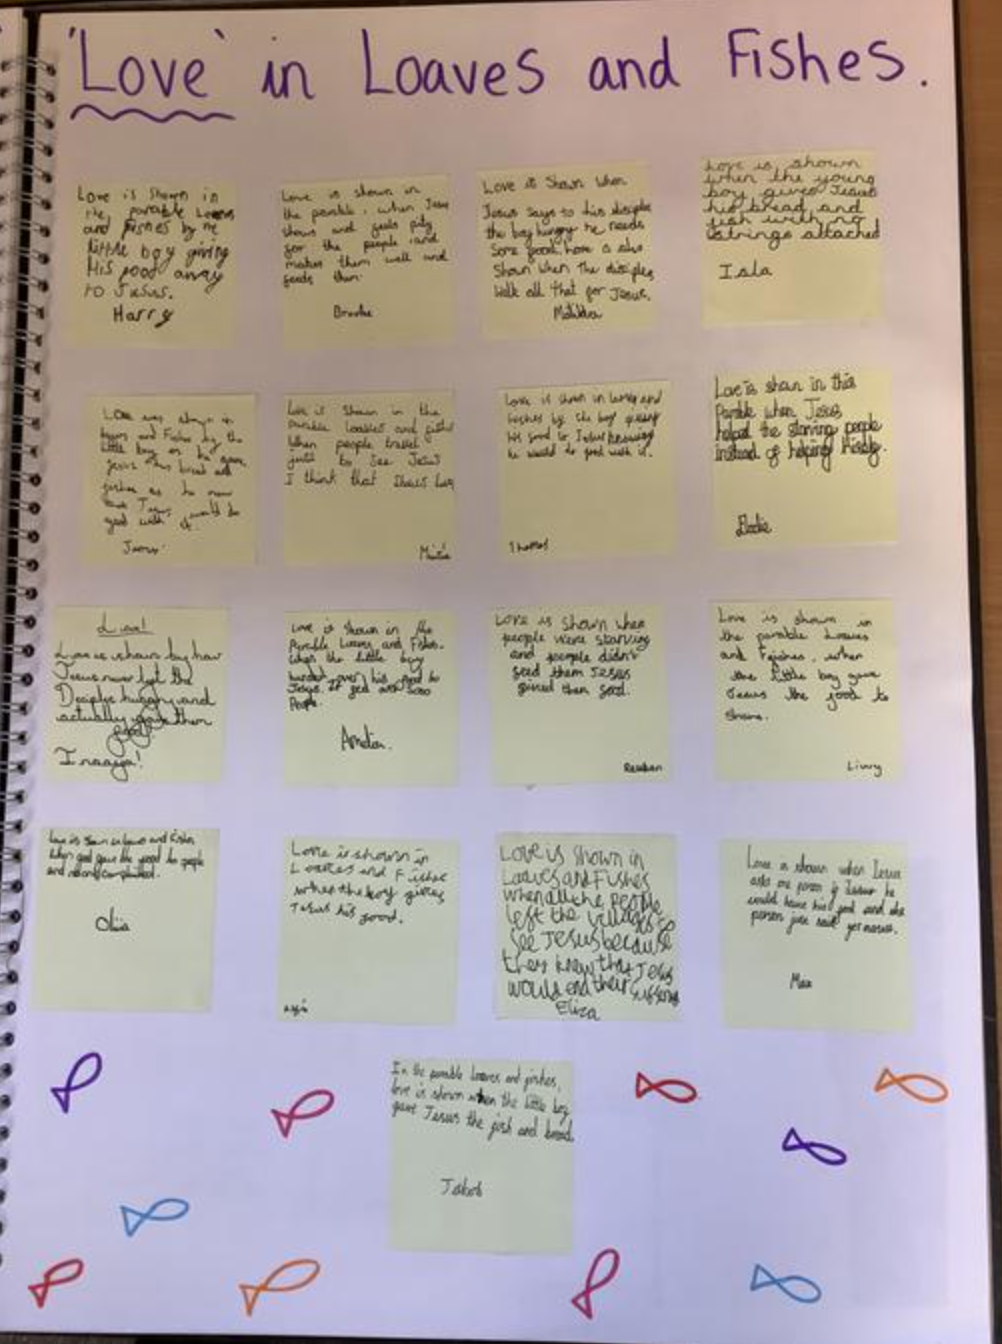 'Love' in Loaves and Fishes.
Love is Shown in
the parable Loaves
and Fishes by the
little boy giving
His food away
to Jesus.
Harry
Love is shown in
the parable, when Jesus
shows and feels pity
for the people and
makes them well and
feeds them.
Brooke
Love is Shown When
Jesus says to his disciple
the boy hungry he needs
Some food. love is also
Shown when the disciples
walk all that for Jesus.
Matilda
Love is shown
when the young
boy gives Jesus
his bread and
fish with no
strings attached
Isla
Love was shown in
loaves and Fishes by the
little boy as he gave
Jesus his bread and
fishes as he new
that Jesus would do
good with it.
James
Love is Shown in the
parable loaves and fishes
When people travel
just to See Jesus
I think that Shows love
Love is shown in loaves and
fishes by the boy giving
his food to Jesus knowing
he would do good with it.
Thomas
Love is shown in this
Parable when Jesus
helped the starving people
instead of helping himself.
Elodie
Love!
Love is shown by how
Jesus never left the
Disciple hungry and
actually gave them
food!
Inaaya!
Love is shown in the
Parable Loaves and Fishes.
When the little boy
handed over his food to
Jesus. It fed over 5000
People.
Amelia.
Love is shown when
people were starving
and people didn't
feed them Jesus
gived them food.
Reuben
Love is shown in
the parable Loaves
and Fishes, when
the little boy gave
Jesus the food to
share.
Livvy
Love is Shown in loaves and fishes
When god gave the food to people
and no one complained.
Olivia
Love is shown in
Loaves and Fishes
when the boy gives
Jesus his food.
Love is Shown in
Loaves and Fishes
when all the People
left the villages to
See Jesus because
they knew that Jesus
would end their suffering
Eliza
Love is shown when Jesus
asks one person if Jesus he
could have his food and the
person just said yes
Max
In the parable loaves and fishes,
love is shown when the little boy
gave Jesus the fish and bread.
Jakob